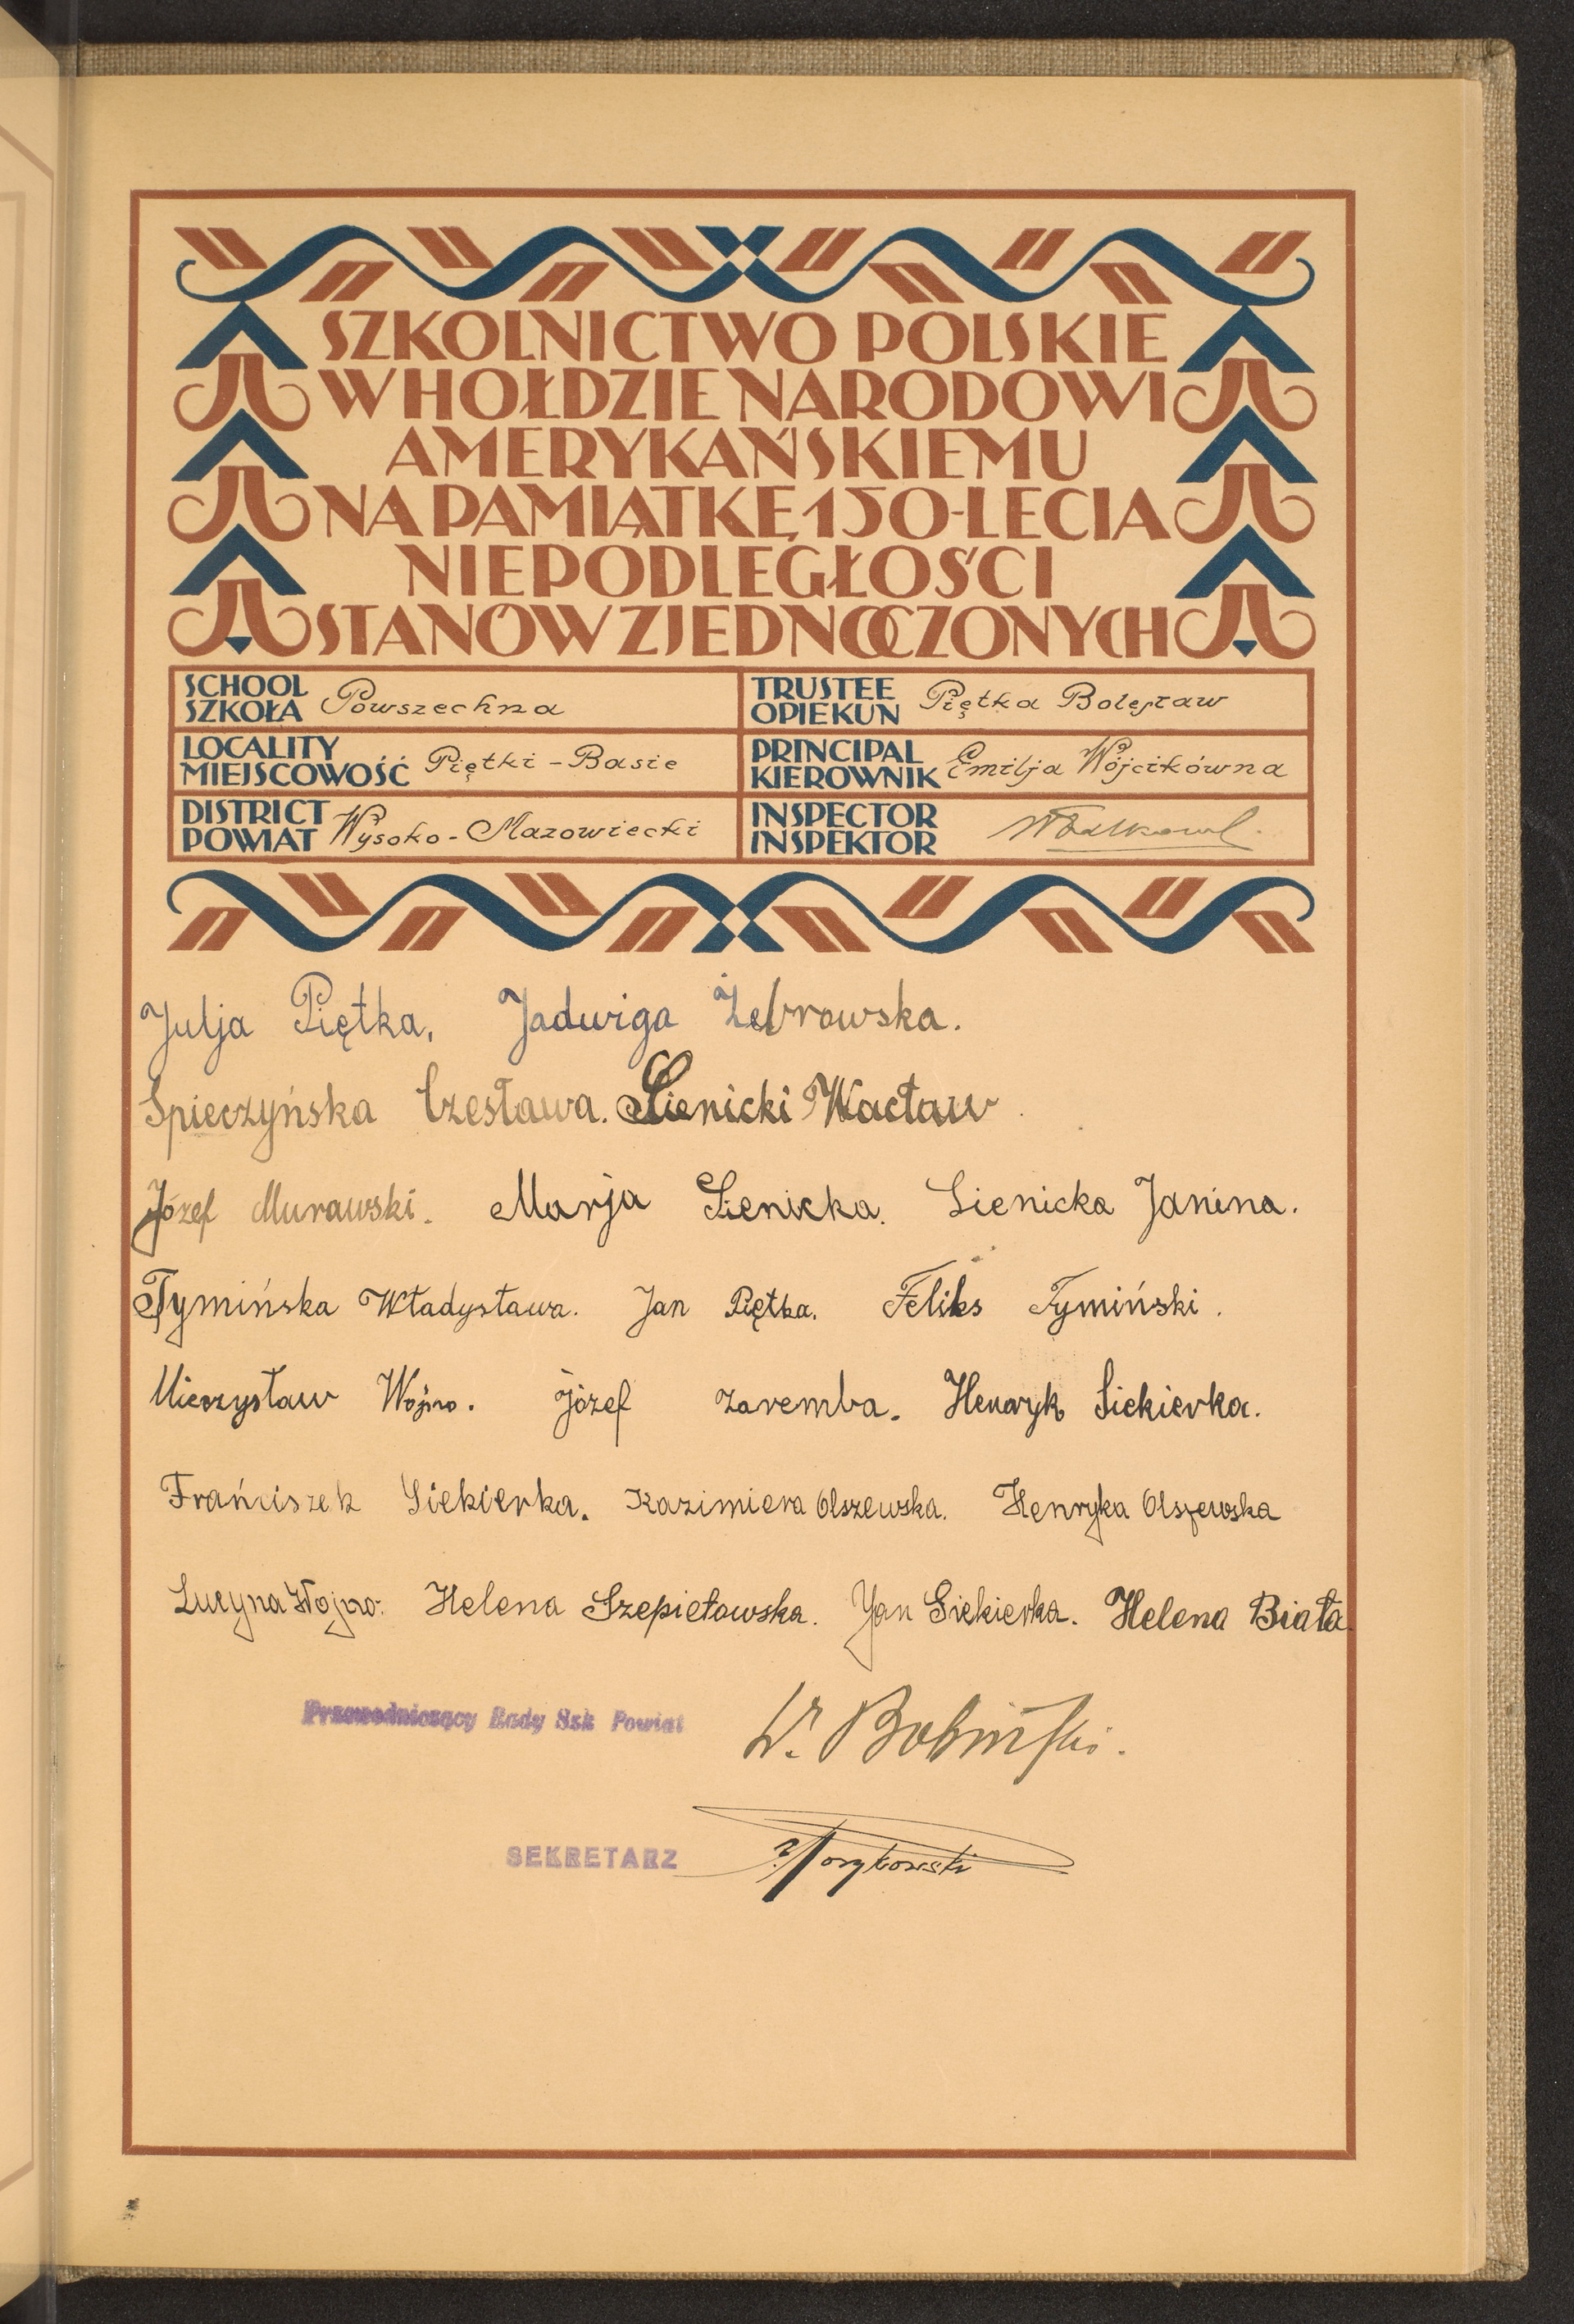 SZKOLNICTWO POLSKIE
W HOŁDZIE NARODOWI
AMERYKAŃSKIEMU
NA PAMIĄTKĘ 150-LECIA
NIEPODLEGŁOŚCI
STANÓW ZJEDNOCZONYCH
SCHOOL SZKOŁA Powszechna
TRUSTEE OPIEKUN Piętka Bolesław
LOCALITY MIEJSCOWOŚĆ Piętki-Basie
PRINCIPAL KIEROWNIK Emilja Wójcikówna
DISTRICT POWIAT Wysoko-Mazowiecki
INSPECTOR INSPEKTOR
Julja Piętka, Jadwiga Żebrowska.
Spieczyńska Czesława. Sienicki Wacław
Józef Murawski. Marja Sienicka. Sienicka Janina.
Tymińska Władysława. Jan Piętka. Feliks Tymiński.
Mieczysław Wojno. Józef Zaremba. Henryk Siekierka.
Frańciszek Siekierka. Kazimiera Olszewska. Henryka Olszewska
Lucyna Wojno. Helena Szepietowska. Jan Siekierka. Helena Biała.
Przewodniczący Rady Szk Powiat
Dr. Bobiński.
SEKRETARZ